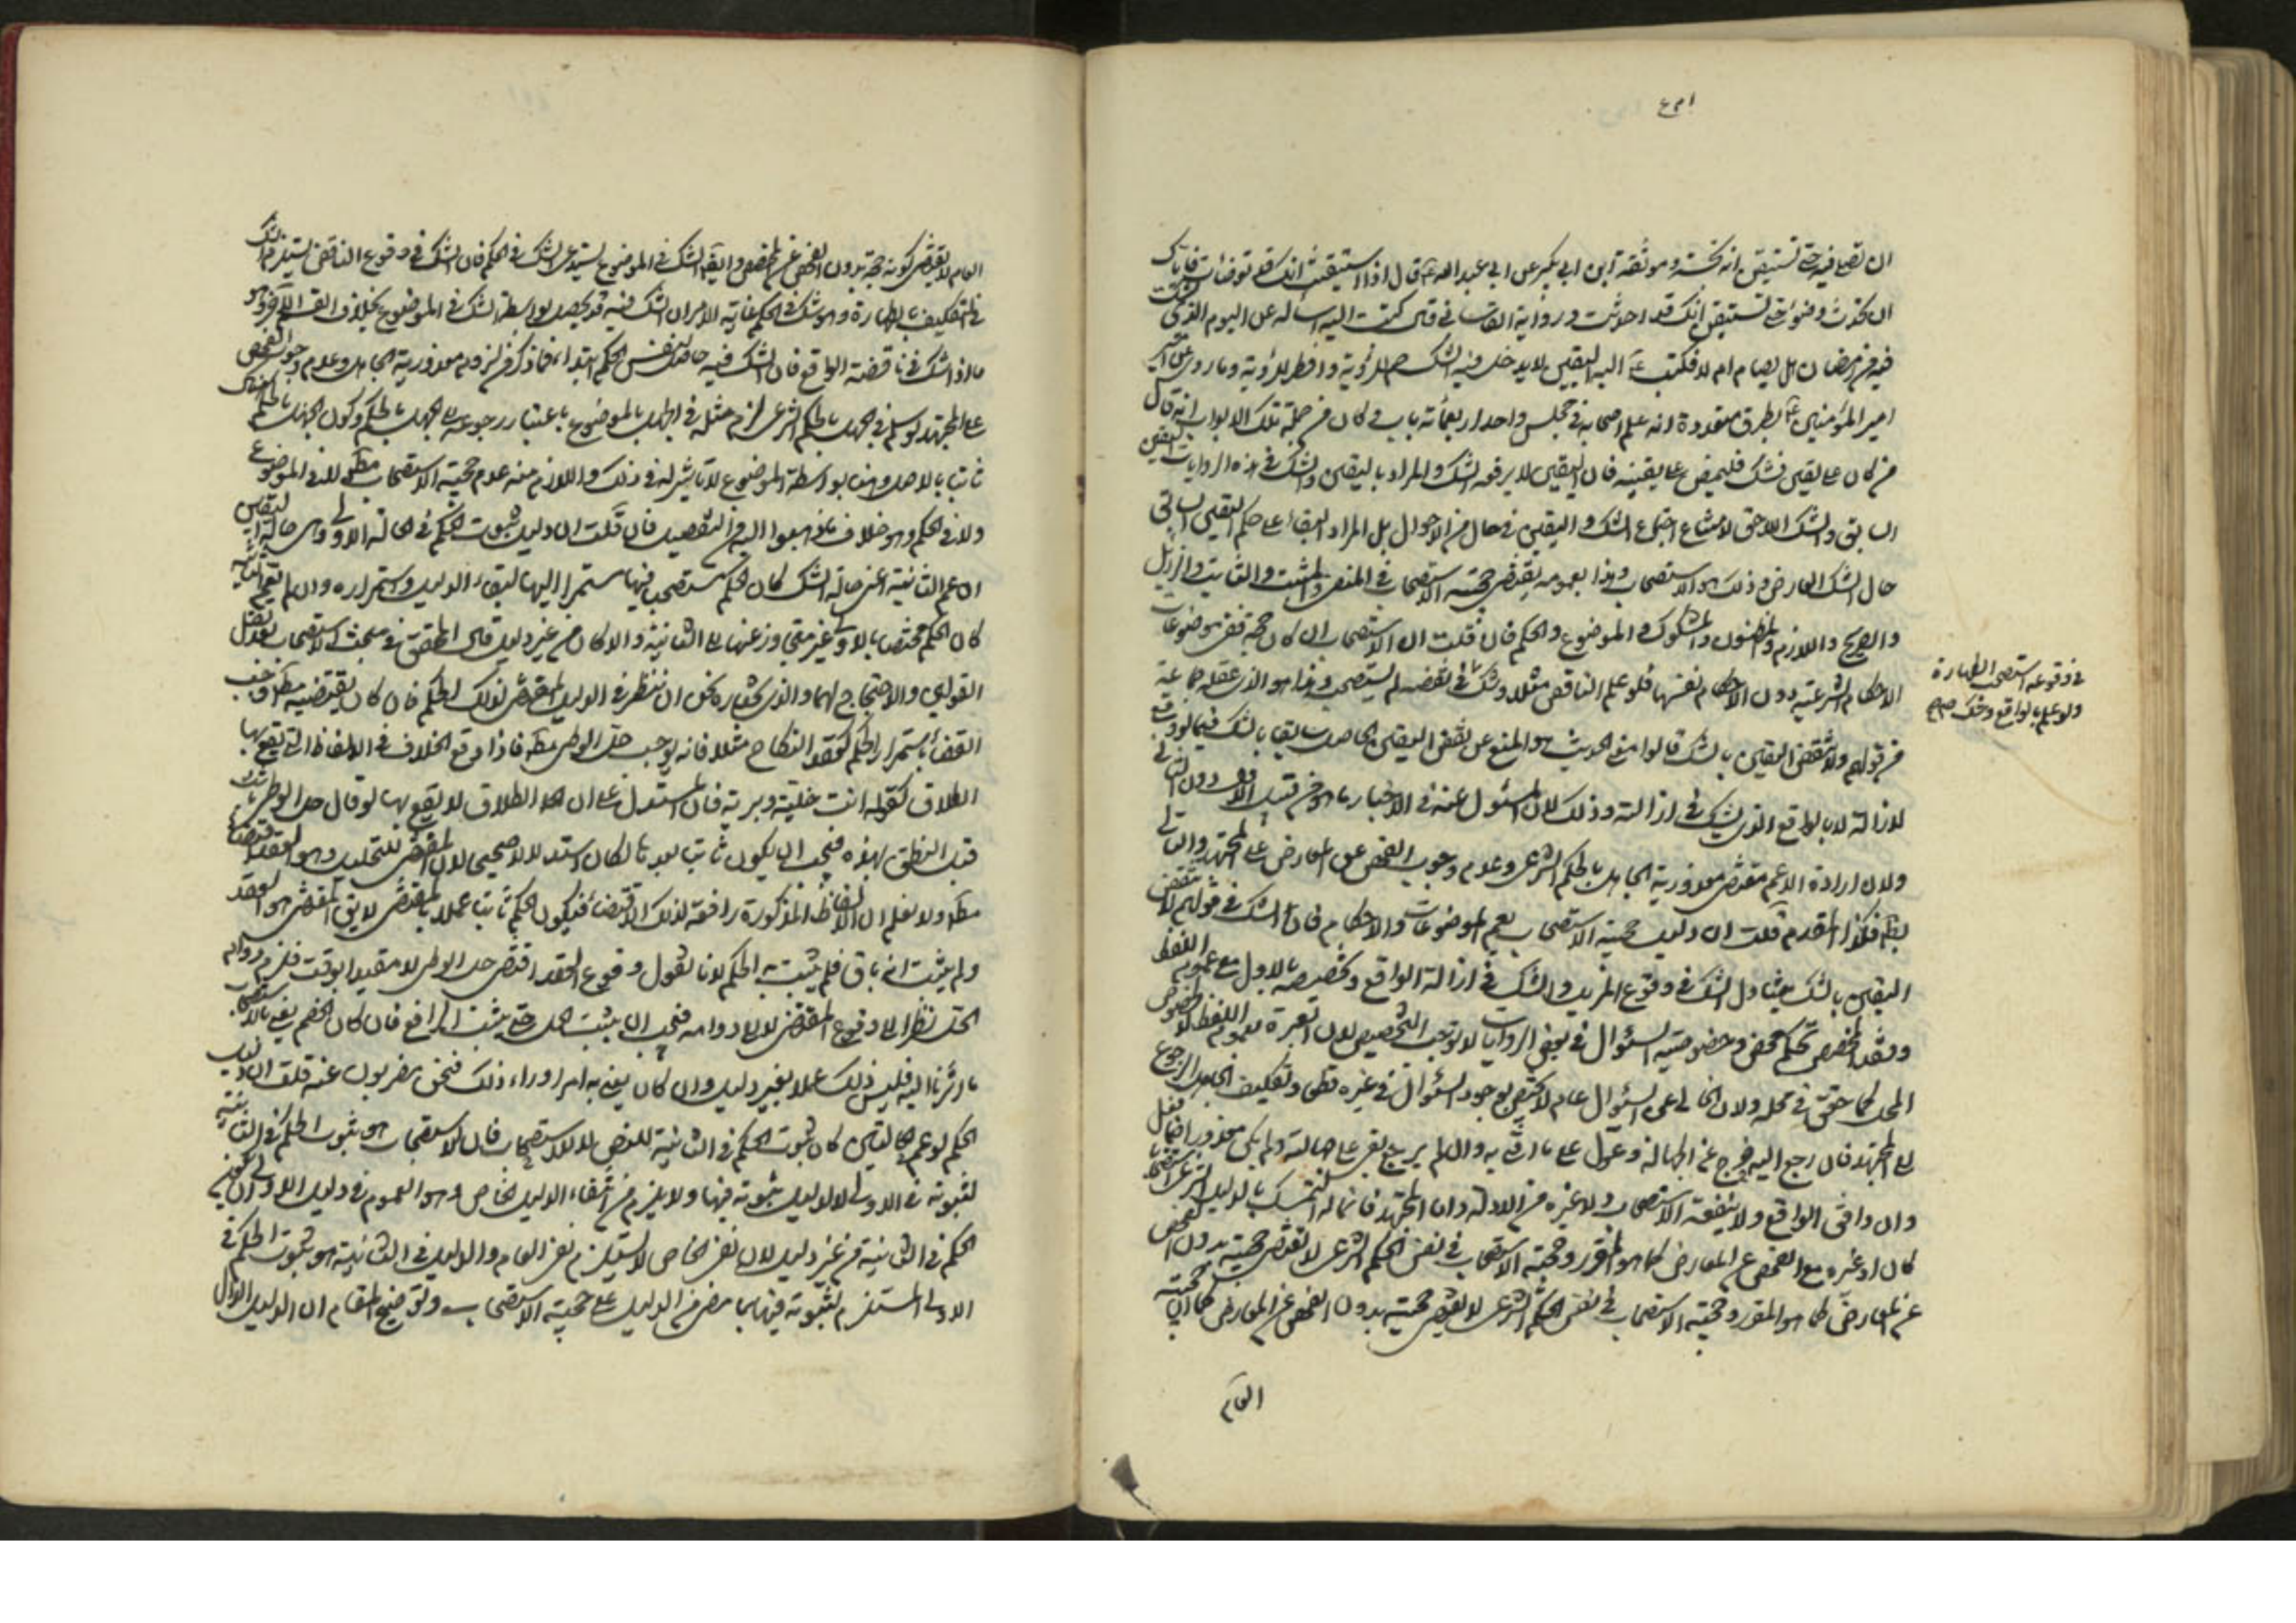 ان تصلي فيه حتى تستيقن انه نجسته وموثقة ابن ابي بكير عن ابي عبد الله ع قال اذا استيقنت انك قد توضأت فاياك
ان تحدث وضوء حتى تستيقن انك قد احدثت ورواية القاساني قال كتبت اليه اسأله عن اليوم الذي يشك
فيه من رمضان هل يصام ام لا فكتب ع اليه اليقين لا يدخل فيه الشك صم للرؤية وافطر للرؤية وما روي عن
امير المؤمنين ع بطرق متعددة انه علم اصحابه في مجلس واحد اربعمأته باب وكان من جملة تلك الابواب انه قال
من كان على يقين فشك فليمض على يقينه فان اليقين لا يرفعه الشك والمراد باليقين والشك في هذه الروايات اليقين
السابق والشك اللاحق لامتناع اجتماع الشك واليقين في حال من الاحوال بل المراد البقاء على حكم اليقين السابق
حال الشك العارض وذلك هو الاستصحاب وهذا بعمومه يقتضي حجية الاستصحاب في المنفي والمثبت والثابت والزايل
والصريح واللازم والمظنون والمشكوك والموضوع والحكم فان قلت ان الاستصحاب ان كان حجة ففي موضوعات
الاحكام الشرعية دون الاحكام نفسها فلو علم الناقض مثلا وشك في نقضه لم يستصحب وهذا هو الذي عقله جماعة
في وقوعه استصحب الطهارة
ولو علم بالواقع وشك صح
من قولهم ولا تنقض اليقين بالشك قالوا منع الحديث هو المنع عن نقض اليقين الحاصل سابقا بالشك فيما لو وقع
لازالة لا بالواقع الذي يشك في ازالته وذلك لان المسئول عنه في الاخبار ما هو من قبيل الاول دون الثاني
ولان ارادة الاعم مقتض معذورية الجاهل بالحكم الشرعي وعدم وجوب الفحص عن المعارض على المجتهد والتالي
بط فكذا المقدم قلت ان دليل حجية الاستصحاب يعم الموضوعات والاحكام فان الشك في قولهم لا تنقض
اليقين بالشك يتناول الشك في وقوع المزيل والشك في ازالة الواقع وتخصيصه بالاول مع عموم اللفظ
وفقد المخصص تحكم محض وخصوصية السئوال في بعض الروايات لا يوجب التخصيص لان العبرة بعموم اللفظ لا بخصوص
المحل كما حقق في محله ولان الخالي عن السئوال عام لا يختص بوجود السئوال في غيره قطعا وتكليف الجاهل الرجوع
الى المجتهد فان رجع اليه خرج عن الجهالة وعول على ما ادى به وان لم يرجع بقي على حالته ولم يكن معذورا
وان وافق الواقع ولا ينفعه الاستصحاب ولا غيره من الادلة واما المجتهد فانما له التمسك بالدليل الشرعي
كان او غيره مع الفحص عن المعارض كما هو المقرر وحجية الاستصحاب في نفس الحكم الشرعي لا تقتضي حجيته بدون الفحص
عن المعارض كما هو المقرر وحجية الاستصحاب في نفس الحكم الشرعي لا يقتضي حجيته بدون الفحص عن المعارض كما ان حجية
العام
العام لا يقتضي كونه حجة بدون الفحص عن المخصص وايضا الشك في الموضوع يستدعي الشك في الحكم فان الشك في وقوع الناقض يستلزم الشك
في التكليف بالطهارة وهو شك في الحكم غاية الامر ان الشك فيه قد يحصل بواسطة الشك في الموضوع بخلاف القسم الآخر وهو
ما اذا شك في ناقضية الواقع فان الشك فيه حاصل لنفس الحكم ابتداء فما ذكر من لزوم معذورية الجاهل وعدم وجوب الفحص
على المجتهد لو سلم في الجهل بالحكم الشرعي لزم مثله في الجهل بالموضوع باعتبار رجوعه الى الجهل بالحكم وكون الجهل بالحكم هناك
ثابتا بالاصل وهنا بواسطة الموضوع لا تأثير له في ذلك واللازم منه عدم حجية الاستصحاب مطلقا لا في الموضوع
ولا في الحكم وهو خلاف ما ذهبوا اليه من التفصيل فان قلت ان دليل ثبوت الحكم في الحالة الاولى وهي حالة اليقين
ان عم الثانية اعني حالة الشك كان الحكم المستصحب فيها مستمرا اليها لبقاء الدليل واستمراره وان لم يعم الثانية
كان الحكم مختصا بالاولى غير متجاوز عنها الى الثانية والا كان من غير دليل قال المحقق في مبحث الاستصحاب بعد نقل
القولين والاحتجاج لهما والذي نختاره نحن ان ننظر في الدليل المقتضي لذلك الحكم فان كان يقتضيه مطلقا وجب
القضاء باستمرار الحكم كعقد النكاح مثلا فانه يوجب حل الوطي مطلقا فاذا وقع الخلاف في الالفاظ التي يقع بها
الطلاق كقوله انت خلية وبرية فان المستدل على ان الطلاق لا يقع بها لو قال حل الوطي ثابت
قبل النطق بهذه فيجب ان يكون ثابتا بعدها لكان استدلالا صحيحا لان المقتضي للتحليل وهو العقد اقتضاه
مطلقا ولا نعلم ان الالفاظ المذكورة رافعة لذلك الاقتضاء فيكون الحكم ثابتا عملا بالمقتضي لا يقال المقتضي هو العقد
ولم يثبت انه باق فلم يثبت الحكم لانا نقول وقوع العقد اقتضى حل الوطي لا مقيدا بوقت فلزم دوام
الحل نظرا الى وقوع المقتضي لا الى دوامه فيجب ان يثبت الحل حتى يثبت الرافع فان كان الخصم يعني بالاستصحاب
ما اشرنا اليه فليس ذلك عملا بغير دليل وان كان يعني به امرا وراء ذلك فنحن مضربون عنه قلت ان دليل
الحكم لو عم الحالتين كان ثبوت الحكم في الثانية للنص لا للاستصحاب فان الاستصحاب هو ثبوت الحكم في الثانية
لثبوته في الاولى لا لدليل ثبوته فيها ولا يلزم من انتفاء الدليل الخاص وهو العموم في دليل الاولى ان يكون
الحكم في الثانية من غير دليل لان نفي الخاص لا يستلزم نفي العام والدليل في الثانية هو ثبوت الحكم في
الاولى المستلزم لثبوته فيها بما مضى من الدليل على حجية الاستصحاب وتوضيح المقام ان الدليل الدال